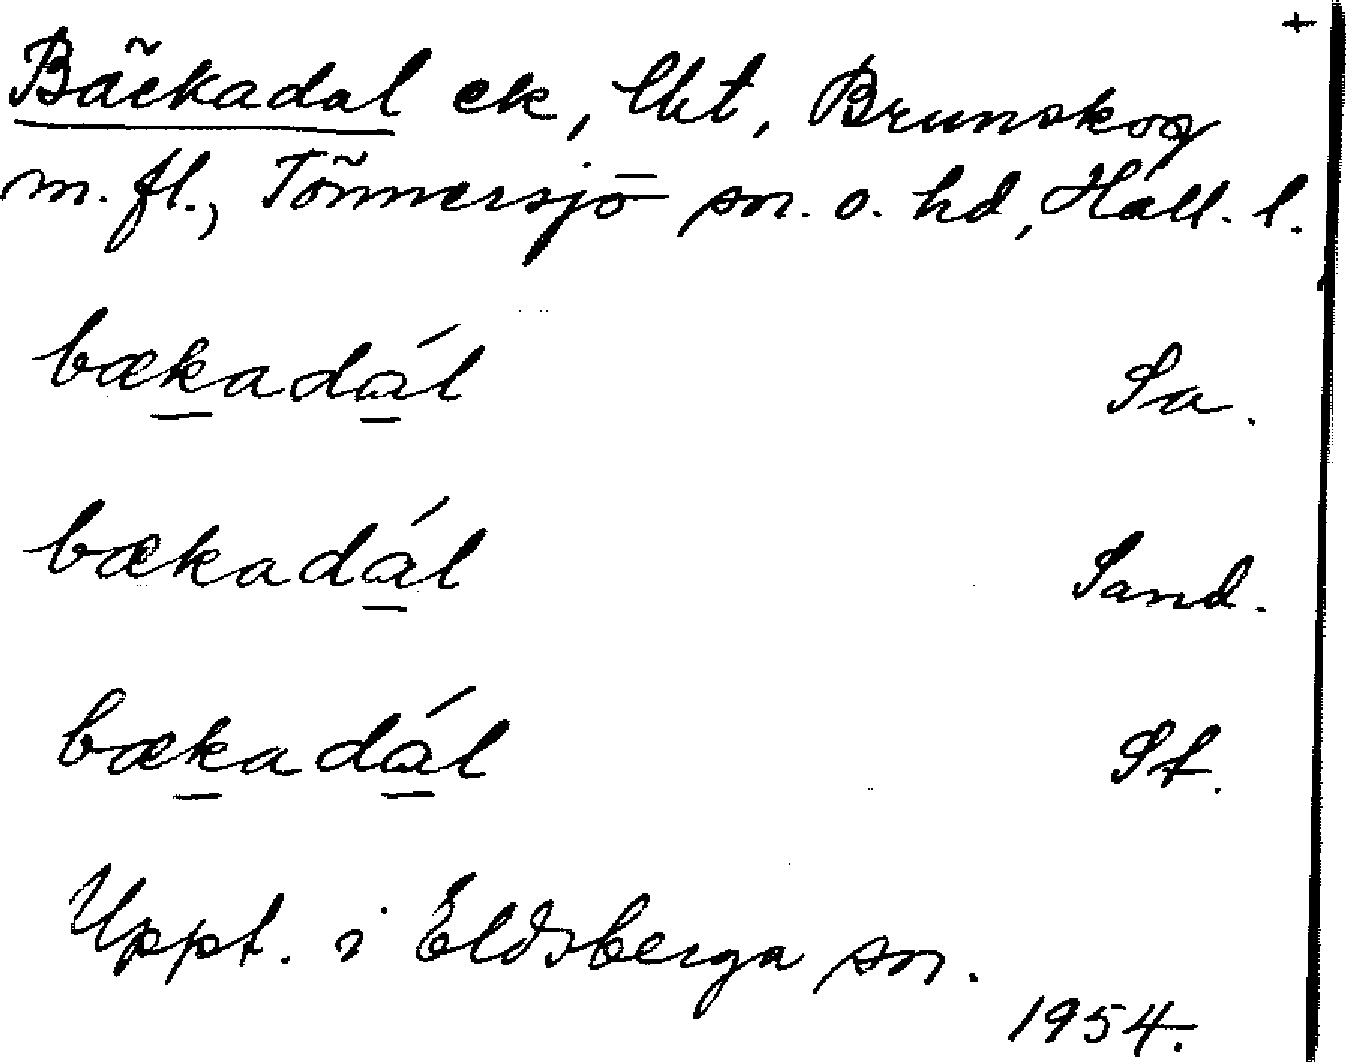 +
Bäckadal ek, lht, Brunskog
m. fl., Tönnersjö sn. o. hd, Hall. l.
bækadál Sa.
bækadál Sand.
bækadál St.
Uppt. i Eldsberga sn.
1954.